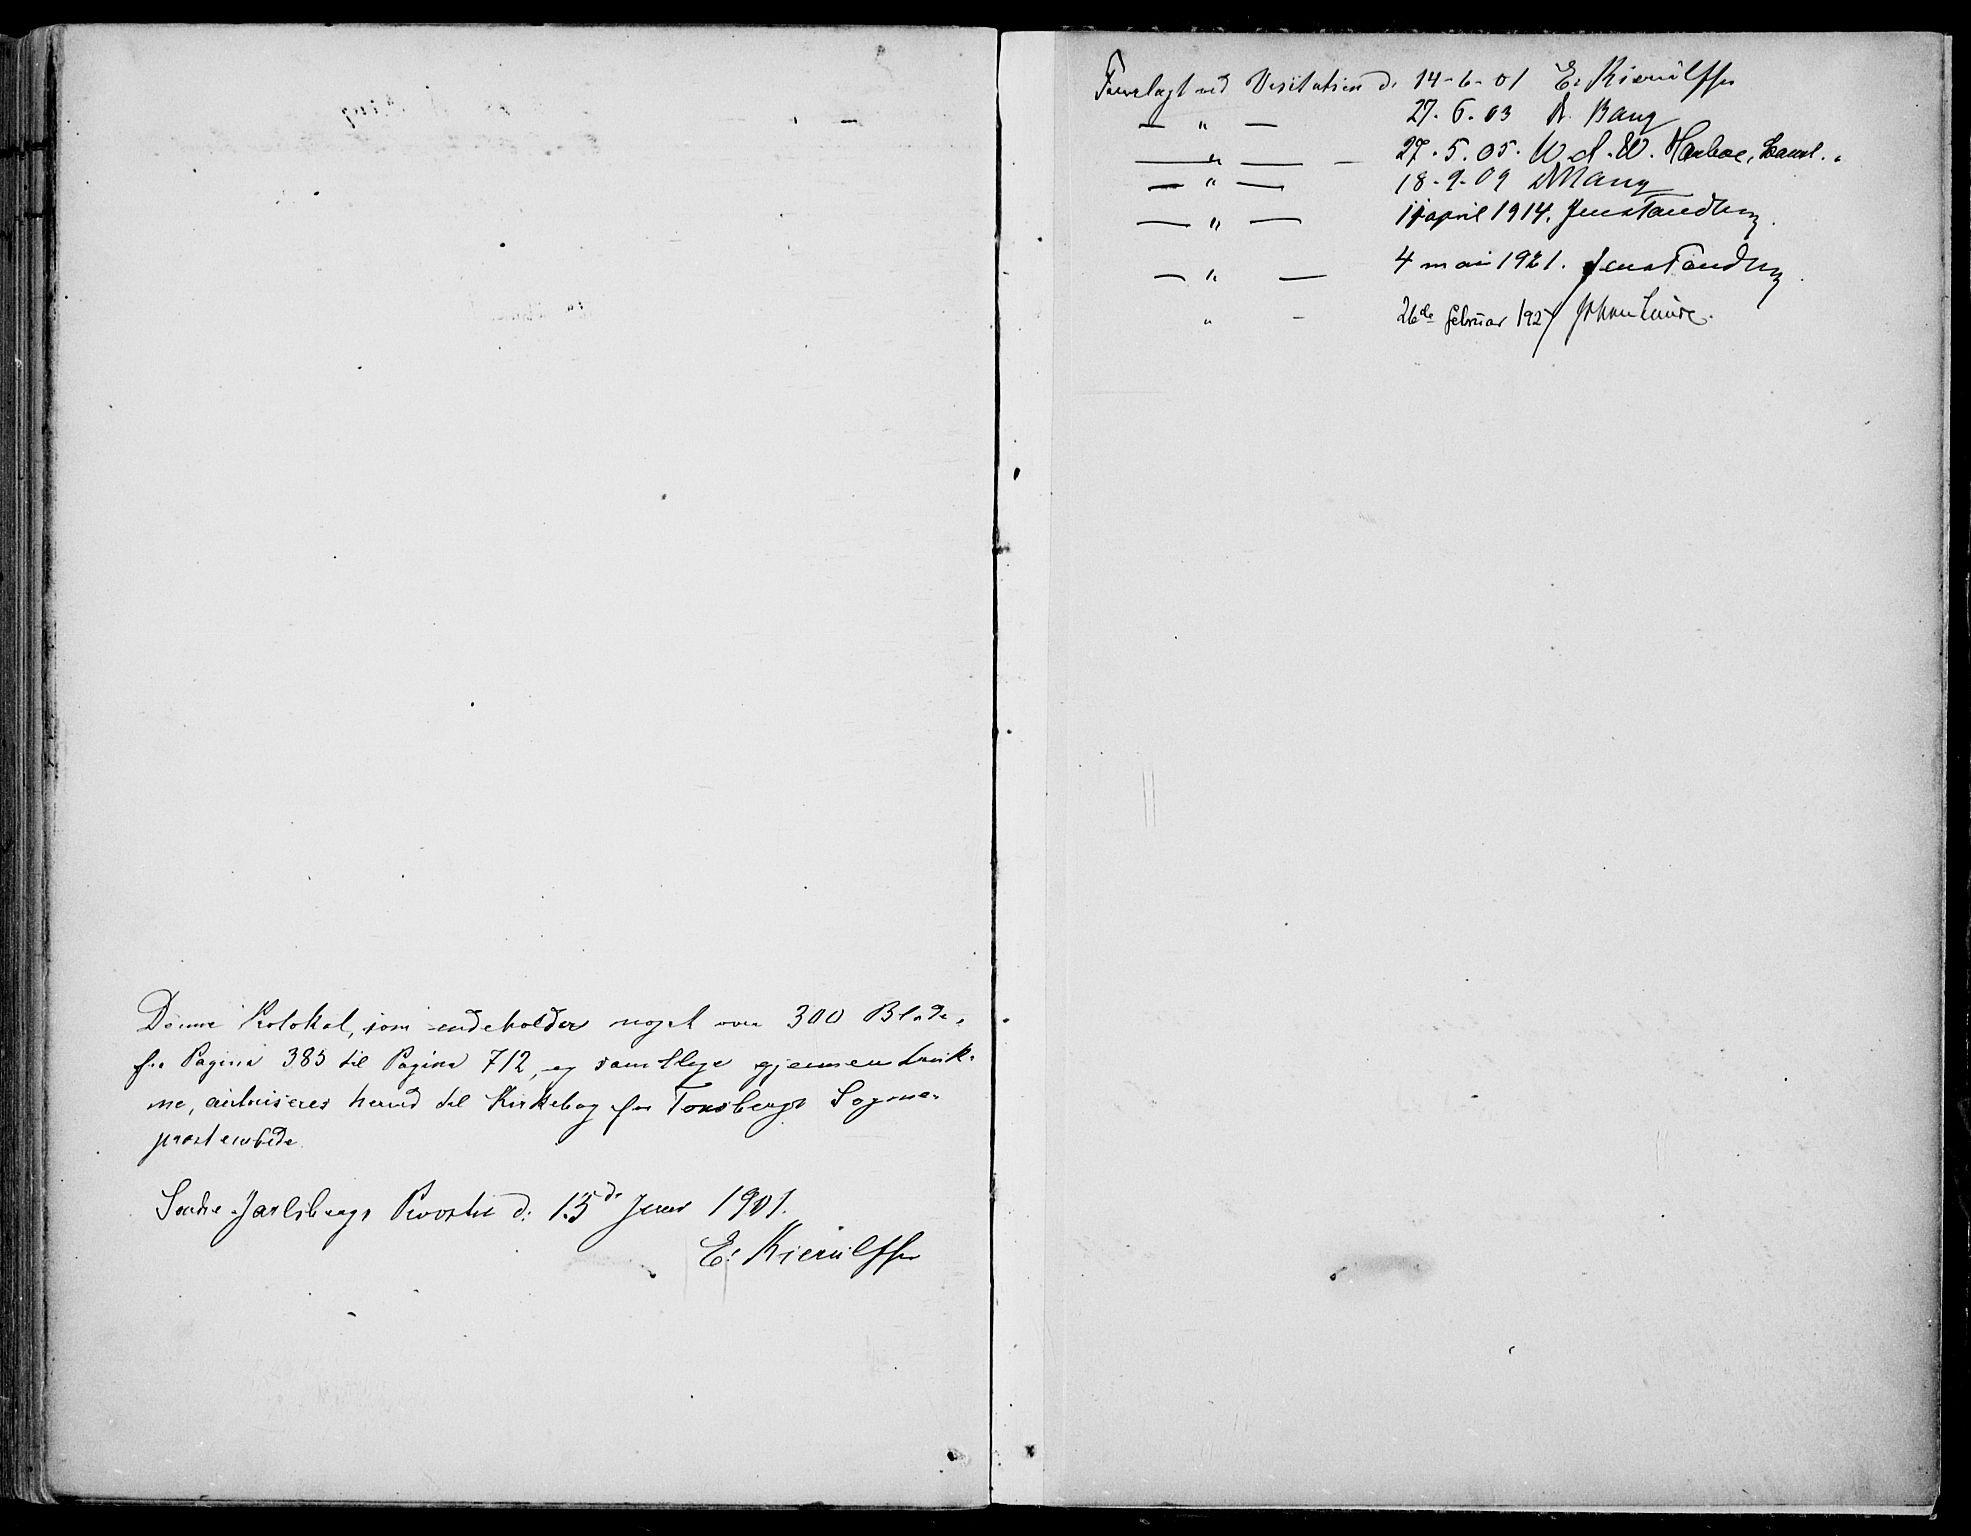 Denne Protokol, som indeholder noget over 300 Blade,
fra Pagina 385 til Pagina 712, og samtlige gjennemtruk-
ne, autoriseres herved til Kirkebog for Tønsbergs Sogne-
præstembede.
Søndre Jarlsbergs Provsti d: 15de Juni 1901.
E: Kierulff
Forelagt ved Visitatsen d. 14-6-01 E. Kierulff
— " — 27.6.03 A. Bang
— " — 27.5.05. W. Harboe,
— " — 18-9-09 Bang
— " — april 1914. Jens Tandberg.
— " — 4 mai 1921. Jens Tandberg.
" — 26de februar 1927 Johan Lunde.